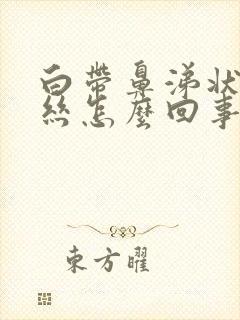 白带鼻涕状
丝怎麼回事
東方曜